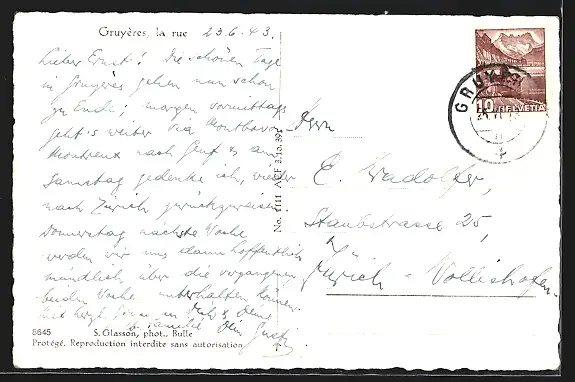 Gruyères, la rue 23.6.43.
Lieber Ernst! Die schönen Tage
in Gruyères gehen nun schon
zu Ende; morgen vormittag
geht's weiter via Montbovon
Montreux nach Genf & am
Samstag gedenke ich, wieder
nach Zürich zurückzureisen
Donnerstag nächste Woche
werden wir uns dann hoffentlich
mündlich über die vergangenen
beiden Woche unterhalten können.
Dich & Deine
Familie Dein
8645 S. Glasson, phot., Bulle
Protégé. Reproduction interdite sans autorisation
No. 1111 ACF 3.10.39
Herrn
E.
Staubstrasse 25,
Zürich - Wollishofen
10 HELVETIA